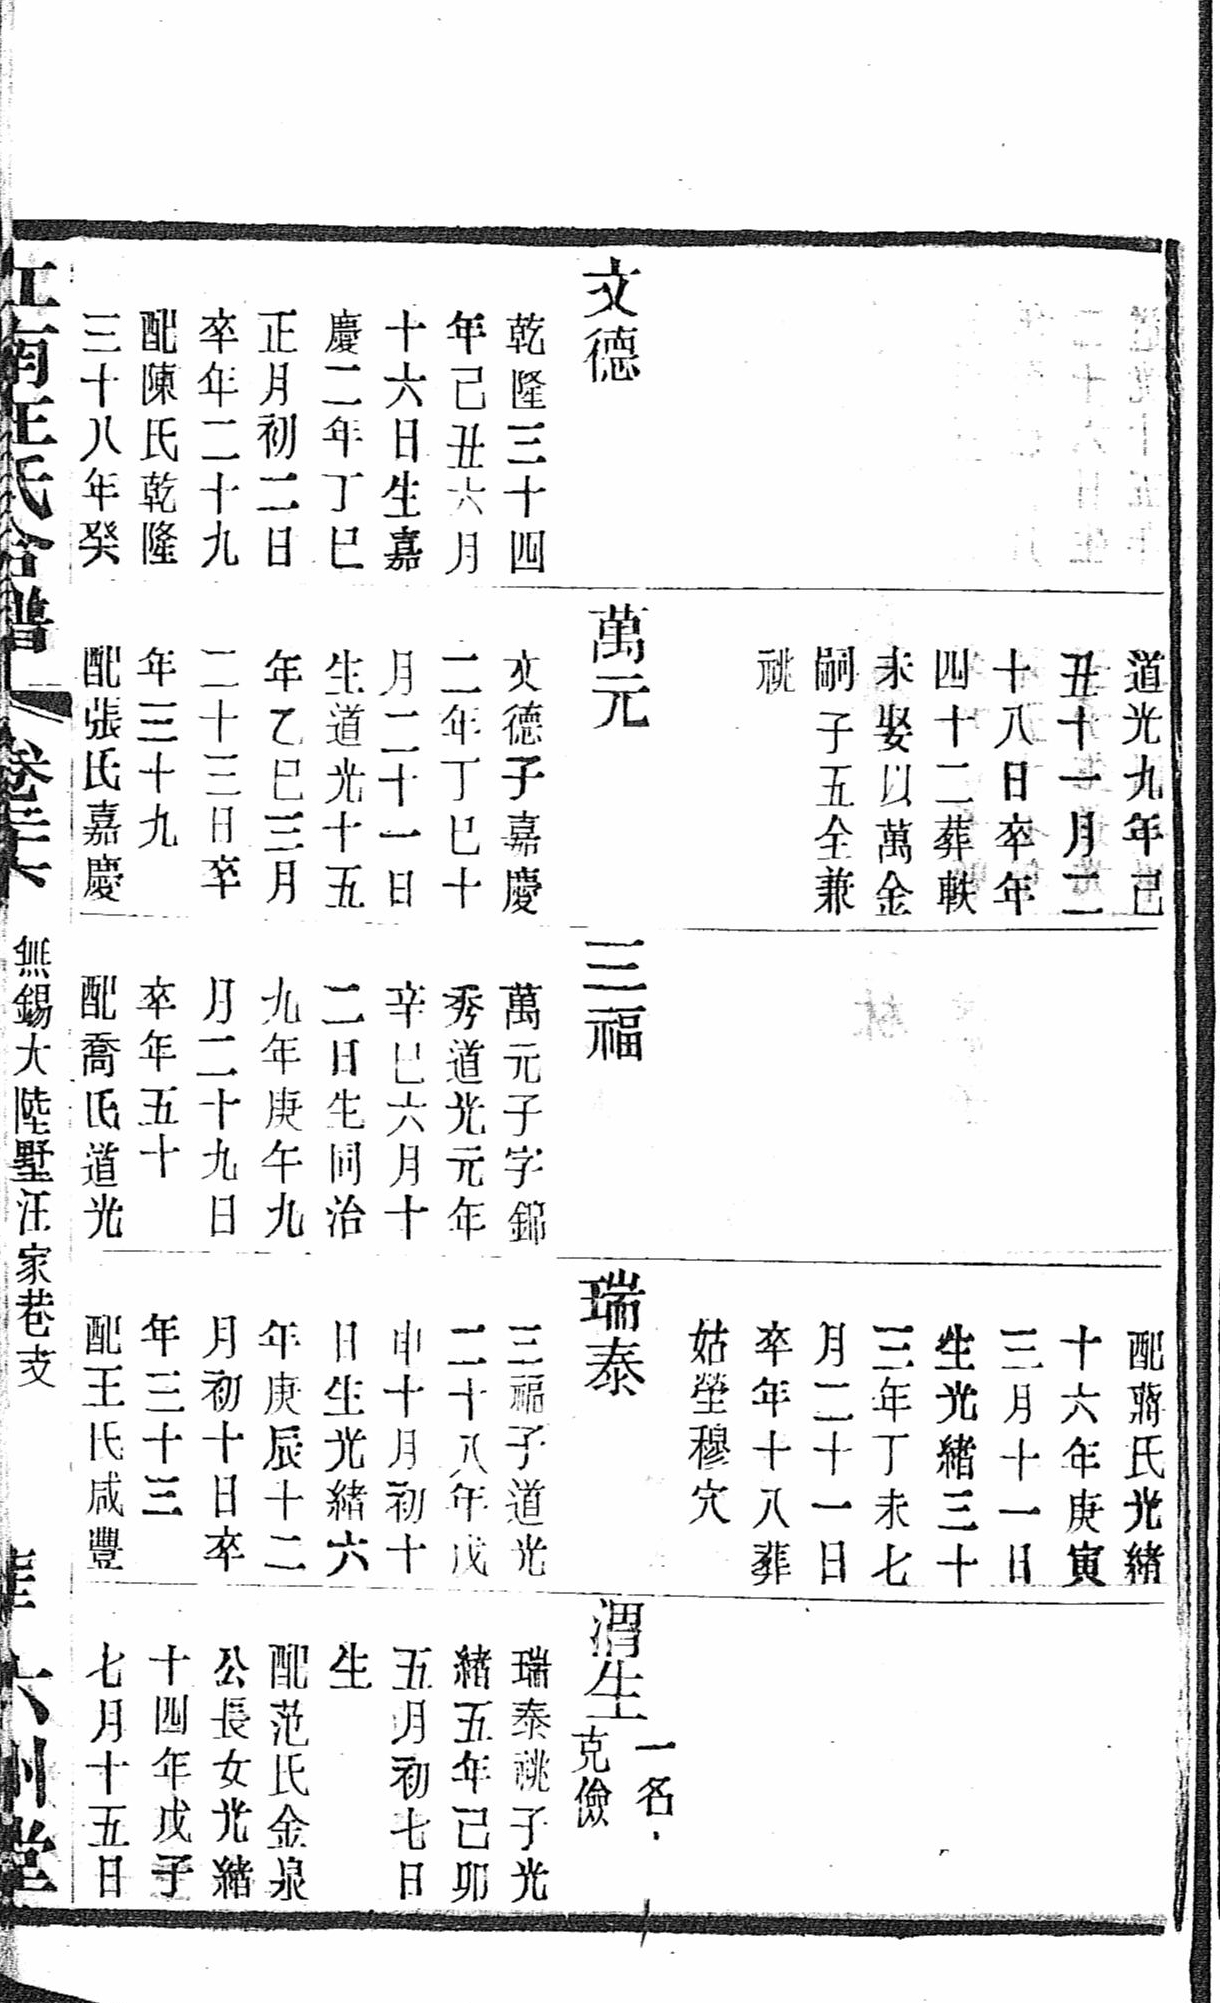 道光九年己
丑十一月二
十八日卒年
四十二葬軼
未娶以萬金
嗣子五全兼
祧
配蔣氏光緒
十六年庚寅
三月十一日
生光緒三十
三年丁未七
月二十一日
卒年十八葬
姑塋穆穴
文德
乾隆三十四
年己丑六月
十六日生嘉
慶二年丁巳
正月初二日
卒年二十九
配陳氏乾隆
三十八年癸
萬元
文德子嘉慶
二年丁巳十
月二十一日
生道光十五
年乙巳三月
二十三日卒
年三十九
配張氏嘉慶
三福
萬元子字錦
秀道光元年
辛巳六月十
二日生同治
九年庚午九
月二十九日
卒年五十
配喬氏道光
瑞泰
三福子道光
二十八年戊
申十月初十
日生光緒六
年庚辰十二
月初十日卒
年三十三
配王氏咸豐
渭生
一名
克儉
瑞泰祧子光
緒五年己卯
五月初七日
生
配范氏金泉
公長女光緒
十四年戊子
七月十五日
江南汪氏合譜
卷三六
無錫大陸墅汪家巷支
六州堂